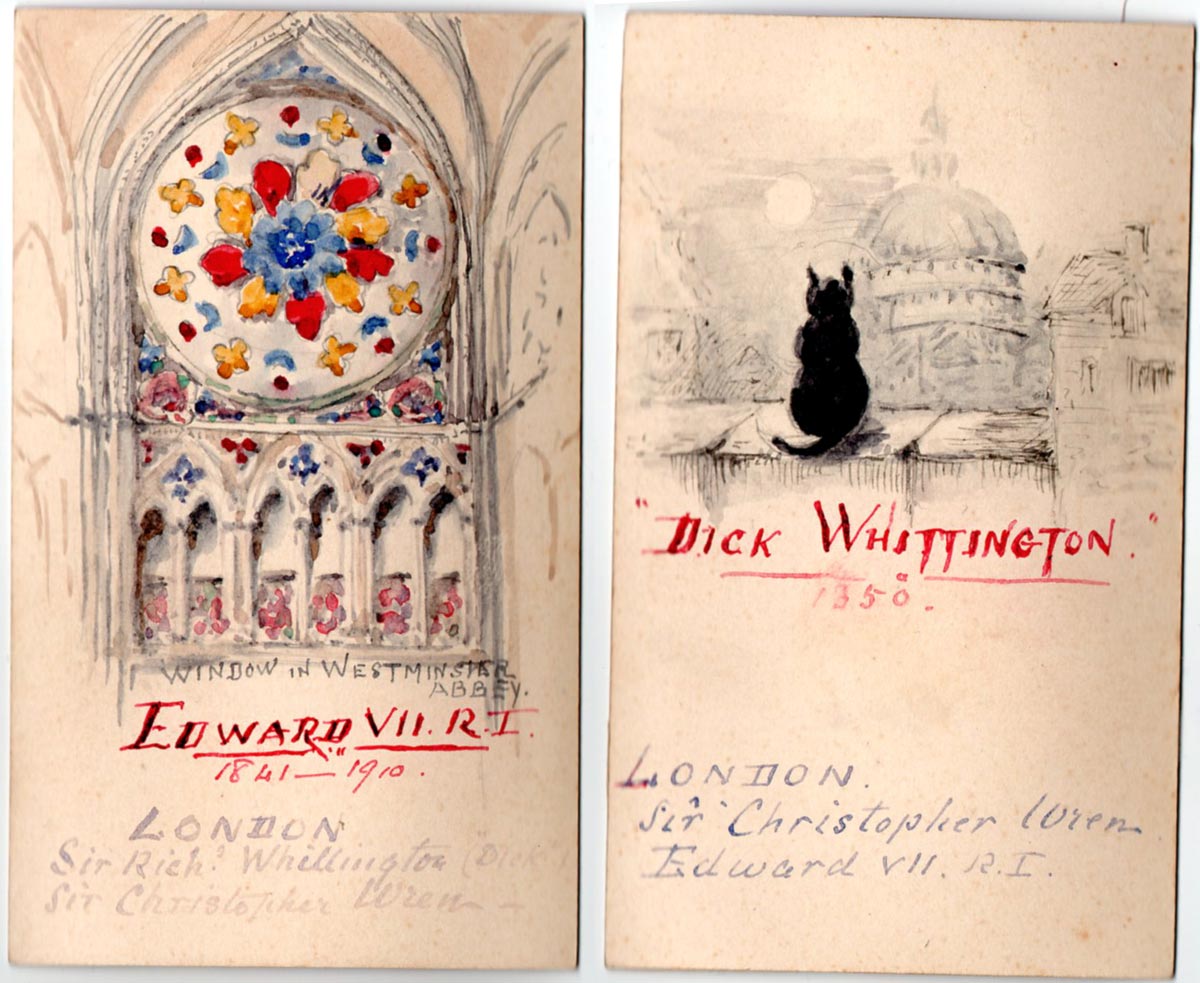 WINDOW IN WESTMINSTER
ABBEY.
EDWARD VII. R.I.
1841 — 1910.
LONDON
Sir Rich? Whillington (Dick)
Sir Christopher Wren —
"DICK WHITTINGTON."
1350.
LONDON.
Sir Christopher Wren
Edward VII. R.I.